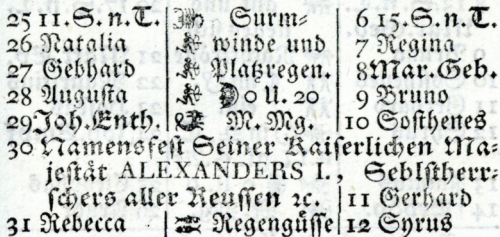 25 11.S.n.T. Sturm- 6 15.S.n.T.
26 Natalia winde und 7 Regina
27 Gebhard Platzregen. 8 Mar.Geb.
28 Augusta 0 U. 20 9 Bruno
29 Joh.Enth. M.Mg. 10 Sosthenes
30 Namensfest Seiner Kaiserlichen Ma-
jestät ALEXANDERS I., Seblstherr-
schers aller Reussen ꝛc. 11 Gerhard
31 Rebecca Regengüsse 12 Syrus